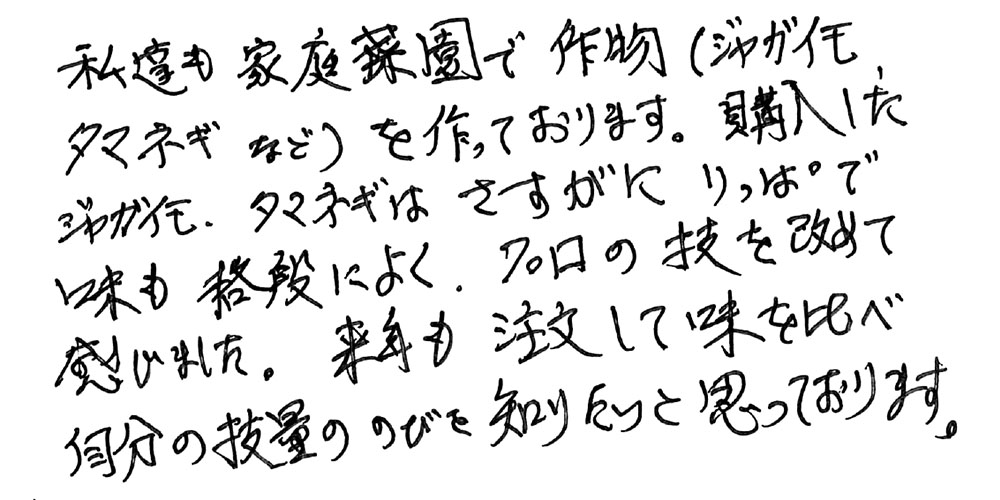 私達も家庭菜園で作物（ジャガイモ、
タマネギなど）を作っております。購入した
ジャガイモ、タマネギはさすがにりっぱで
味も格段によく、プロの技を改めて
感じました。来年も注文して味を比べ
自分の技量ののびを知りたいと思っております。